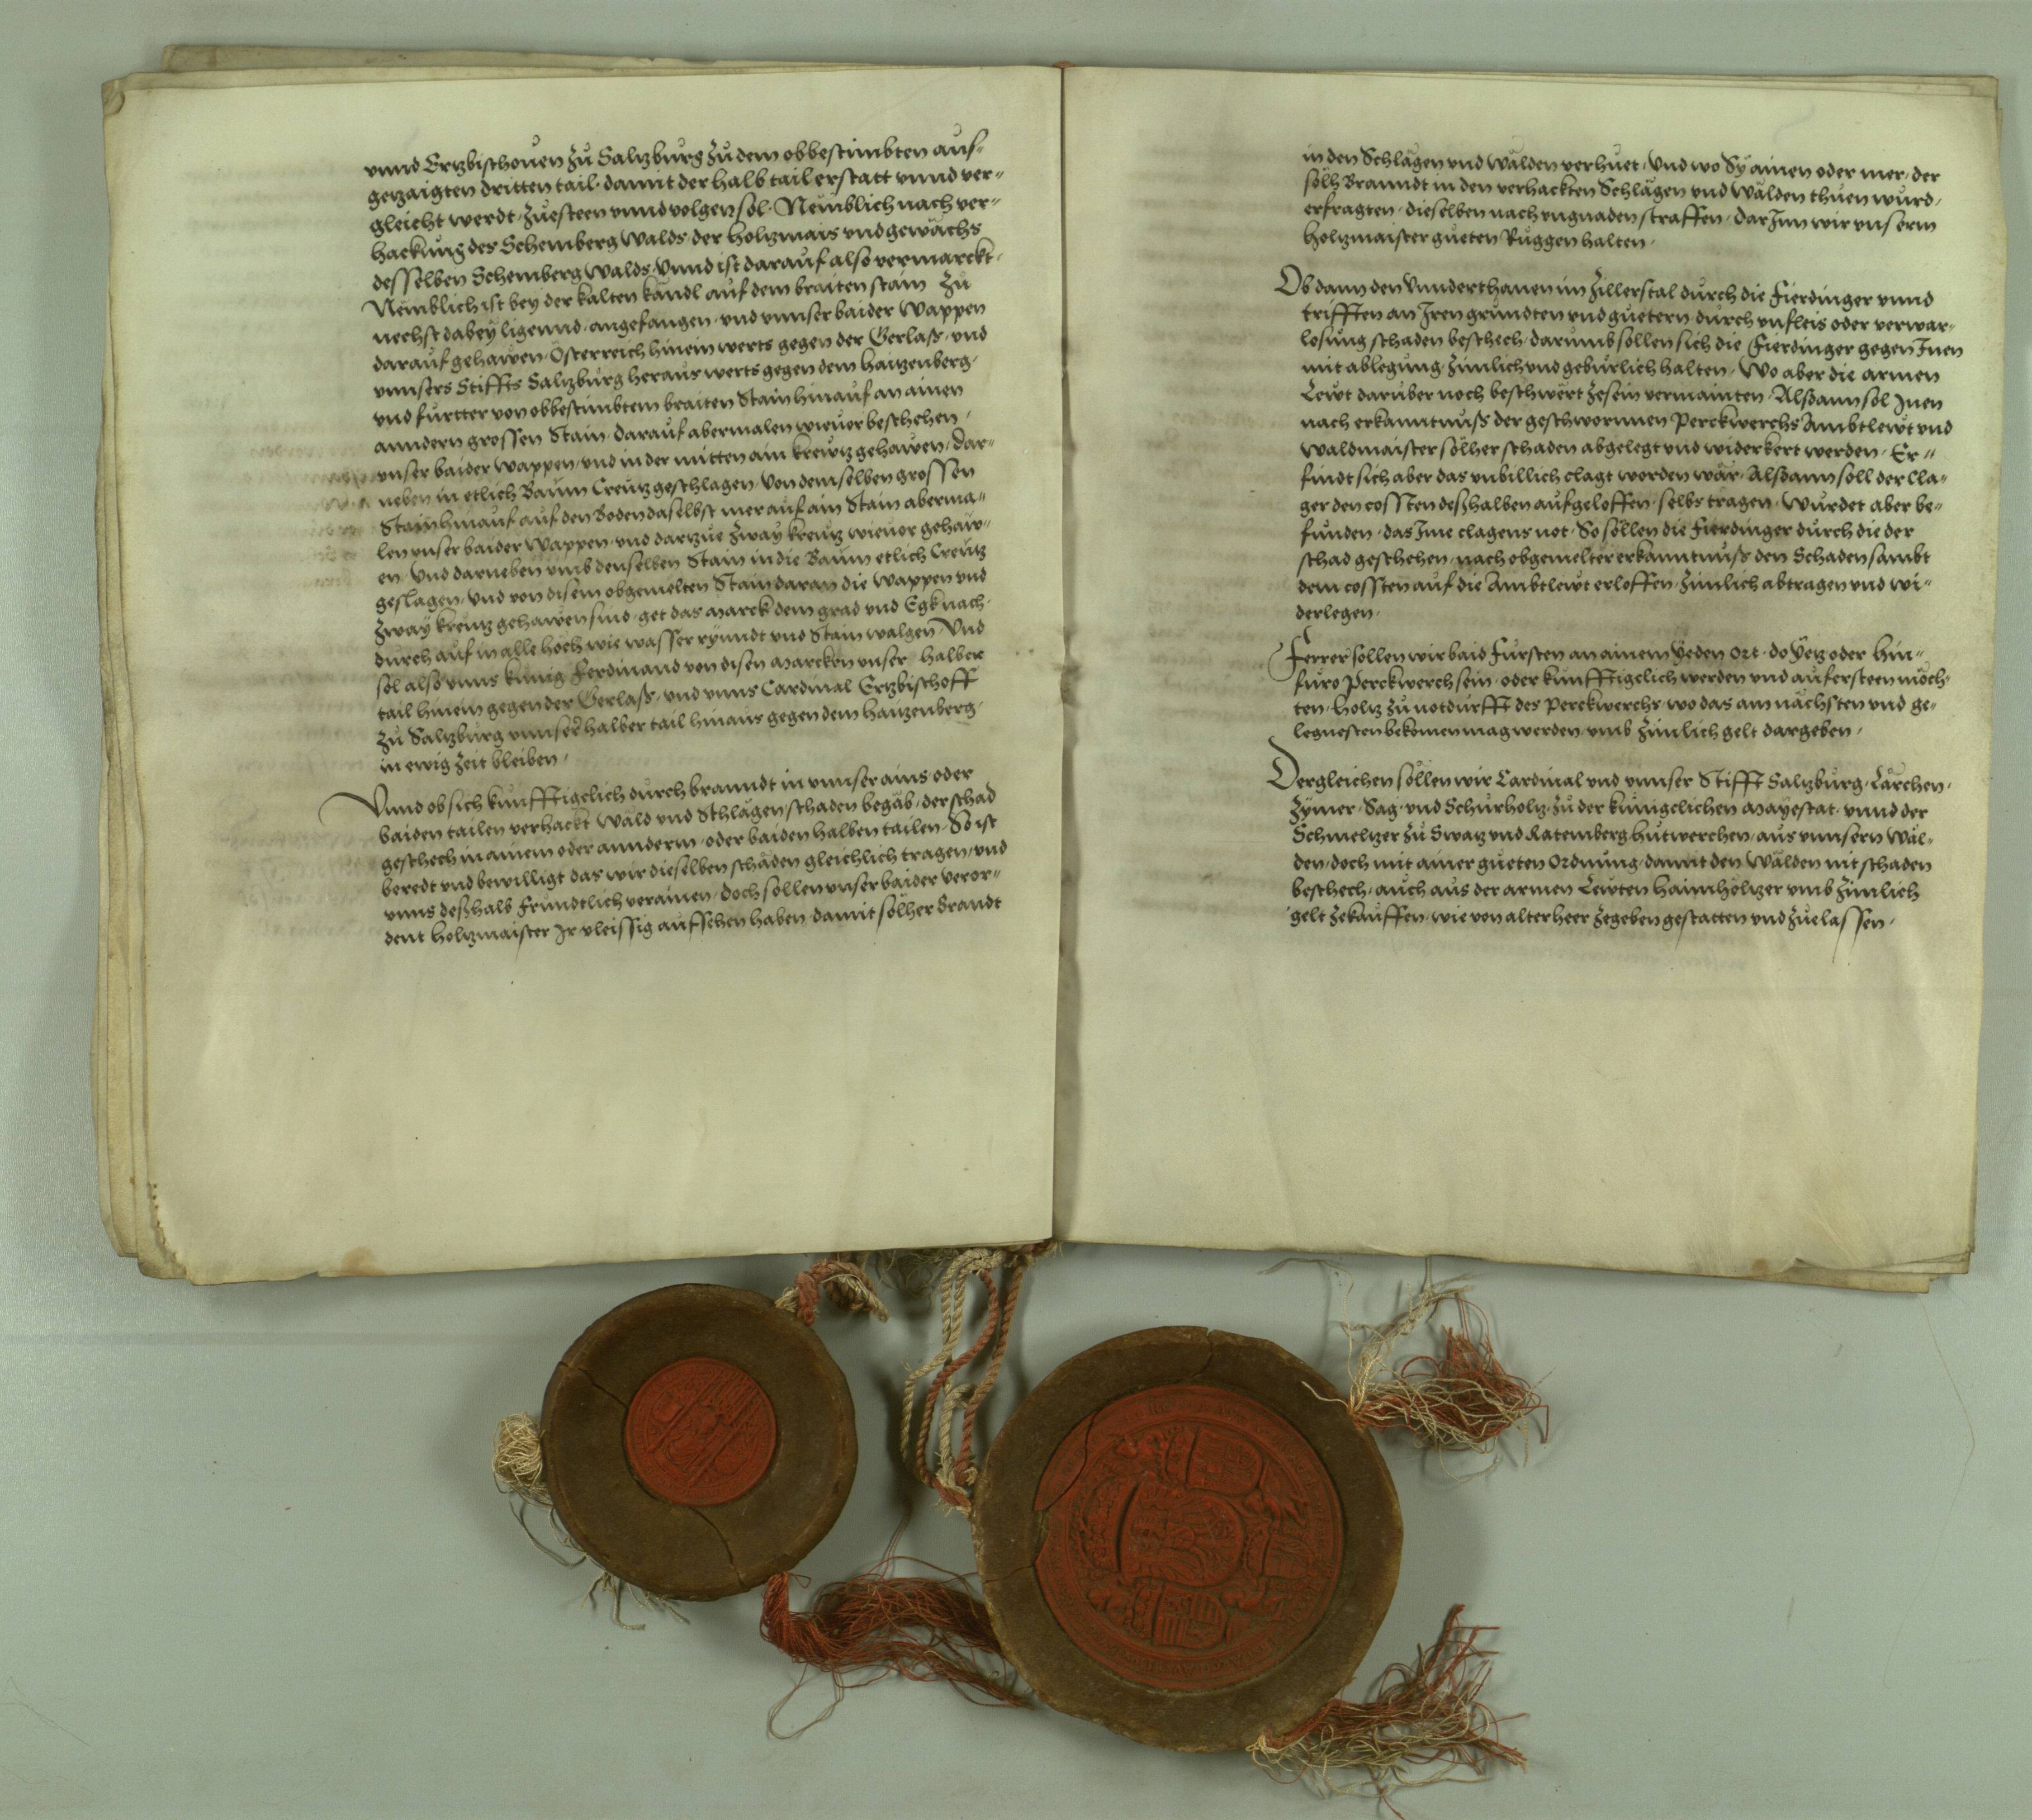 vnnd Ertzbischouen zů Saltzburg zů dem obbestimbten auf-
getzaigten dritten tail, damit der halb tail erstatt vnnd ver-
gleicht werdt, zůesteen vnnd volgen sol. Nemblich nach ver-
hackung des Schemberg Walds, der holtzmais vnd gewächs
desselben Schemberg Walds, Vnnd ist darauf also vermarckt,
Nemblich ist bey der kalten kändl auf dem braiten stain zů
nechst dabey ligennd, angefangen, vnd vnnser baider Wappen
darauf gehawen, Österreich hinein werts gegen der Gerlaß, vnd
vnnsers Stiffts Saltzburg heraus werts gegen dem haitzenberg,
vnd furtter von obbestimbtem braiten Stain hinauf an ainen
anndern grossen Stain, darauf abermalen wieuor beschehen,
vnser baider Wappen, vnd in der mitten ain kreutz gehawen, dar-
neben in etlich Baum Creutz geschlagen, Von demselben grossen
Stain hinauf auf den Boden daselbst mer auf ain Stain aberma-
len vnser baider Wappen, vnd dartzue zway kreutz wieuor gehaw-
en, Vnd darneben vmb denselben Stain in die Baum etlich Creutz
geslagen, Vnd von disem obgemelten Stain daran die Wappen vnd
zway kreutz gehawen sind, get das marck dem grad vnd Egk nach,
durch auf in alle hoch, wie wasser rynndt vnd Stain walgen, Vnd
sol also vnns kunig Ferdinand von disen marcken vnser halber
tail hinein gegen der Gerlaß, vnd vnns Cardinal Ertzbischoff
zů Saltzburg vnnser halber tail hinaus gegen dem hanzenberg,
in ewig zeit bleiben,
Vnnd ob sich kunfftigelich durch branndt in vnnser ains oder
baiden tailen verhackt Wäld vnd Schlägen, schaden begäb, der schad
geschech in ainem oder annderm, oder baiden halben tailen, So ist
beredt vnd bewilligt das wir dieselben schäden gleichlich tragen, vnd
vnns deßhalb frundtlich verainen, doch sollen vnser baider veror-
dent holtzmaister Ir vleissig aufsehen haben, damit sölher brandt
in den Schlägen vnd Wälden verhuet, Vnd wo Sy ainen oder mer, der
sölh Branndt in den verhackten Schlägen vnd Wälden thuen wurd,
erfragten, dieselben nach vngnaden straffen, dar Inn wir vnserm
holtzmaister gueten Ruggen halten,
Ob dann den Vnnderthanen im Zillerstal durch die Fierdinger vnnd
trifften an Iren grundten vnd guetern durch vnfleis oder verwar-
losung schaden beschech, darumb sollen sich die Fierdinger gegen Inen
mit ablegung, zimlich vnd gebürlich halten, Wo aber die armen
Lewt daruber noch beschwert zesein vermainten, Alßdann sol Inen
nach erkanntnuß der geschwornnen Perckwerchs Ambtlewt vnd
Waldmaister sölher schaden abgelegt vnd widerkert werden, Er-
findt sich aber das vnbillich clagt worden wär, Alßdann soll der Cla-
ger den cossten deßhalben aufgeloffen, selbs tragen, Wurdet aber be-
funden, das Ime clagens not, So sollen die Fierdinger durch die der
schad geschehen, nach obgemelter erkanntnuß den Schaden sambt
dem cossten auf die Ambtlewt erloffen, zimlich abtragen vnd wi-
derlegen,
Ferrer sollen wir baid Fürsten an ainem yeden ort, do yetz oder hin-
furo Perckwerch sein, oder kunfftigelich werden vnd auf ersteen möch-
ten, holtz zu notdurfft des Perckwerchs, wo das am nächsten vnd ge-
legnesten bekomen mag werden, vmb zimlich gelt dargeben,
Dergleichen sollen wir Cardinal vnd vnnser Stifft Saltzburg, Lärchen,
Zymer, Sag, vnd Schurholtz, zů der kunigelichen mayestat, vnnd der
Schmeltzer zů Swatz vnd Ratemberg hutwerchen, aus vnnsern Wäl-
den, doch mit ainer gueten ordnung, damit den Wälden nit schaden
beschech, auch aus der armen Lewten haimhöltzer vmb zimlich
gelt zekauffen, wie von alter heer zegeben gestatten vnd zuelassen,